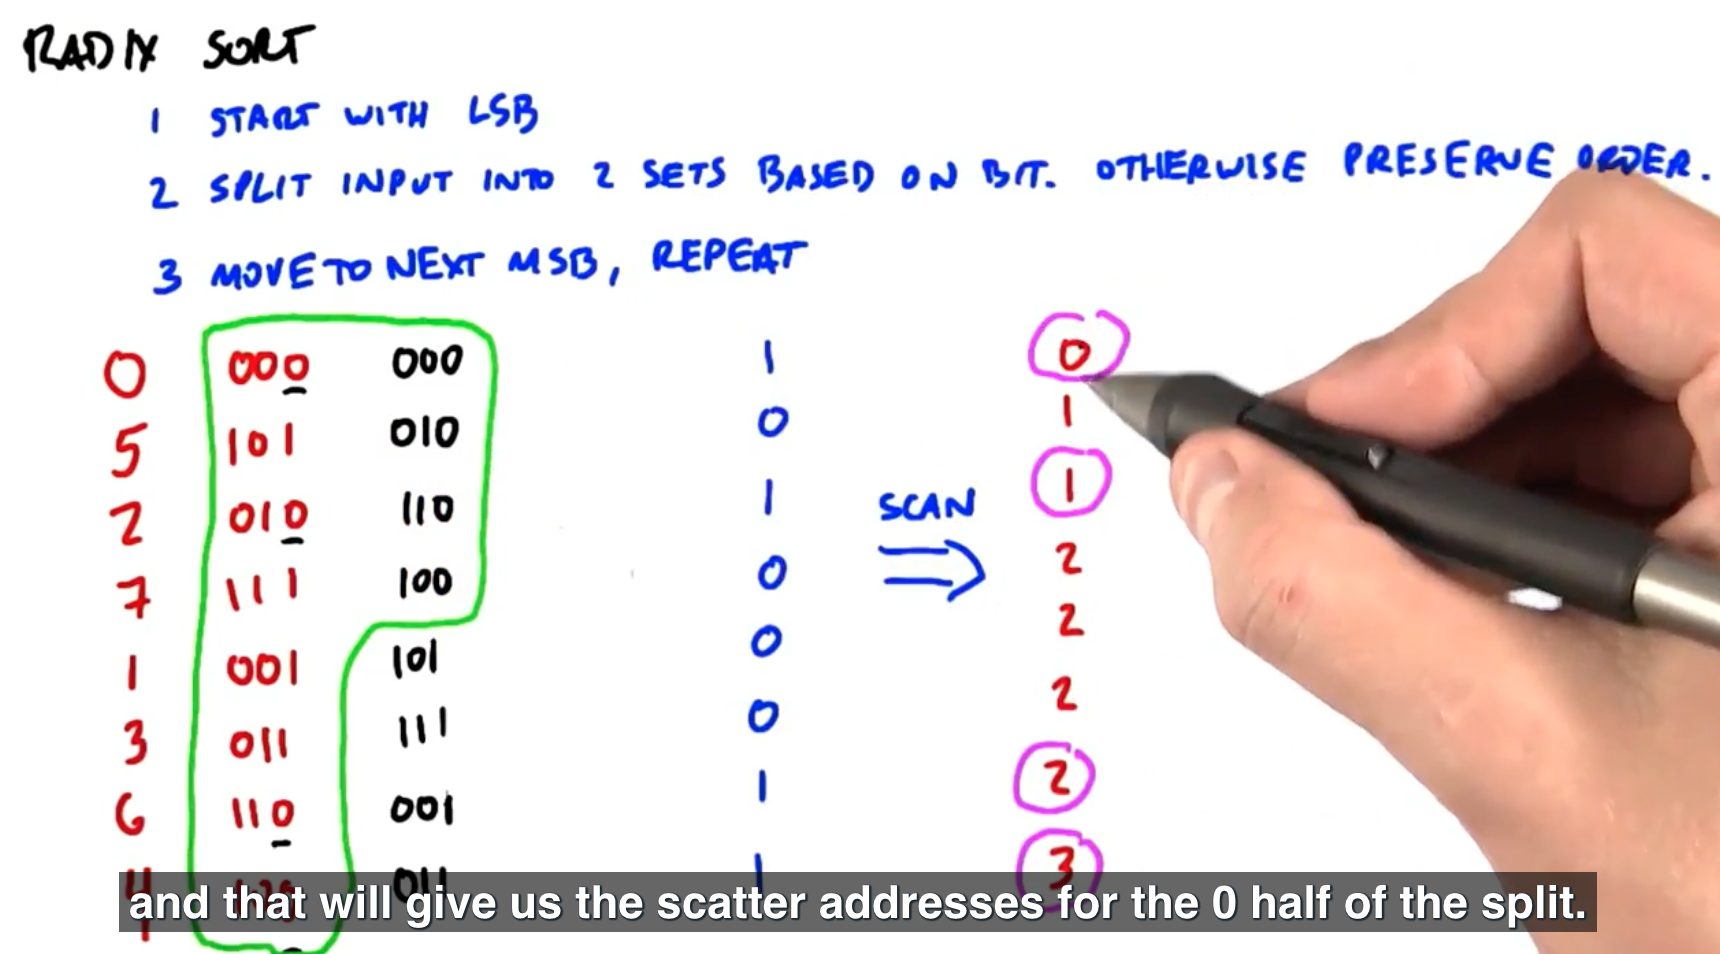 RADIX SORT
1 START WITH LSB
2 SPLIT INPUT INTO 2 SETS BASED ON BIT. OTHERWISE PRESERVE ORDER.
3 MOVE TO NEXT MSB, REPEAT
0 000 000 1 0
5 101 010 0 1
2 010 110 1 1
SCAN
7 111 100 0 2
1 001 101 0 2
3 011 111 0 2
6 110 001 1 2
4 011 1 3
and that will give us the scatter addresses for the 0 half of the split.